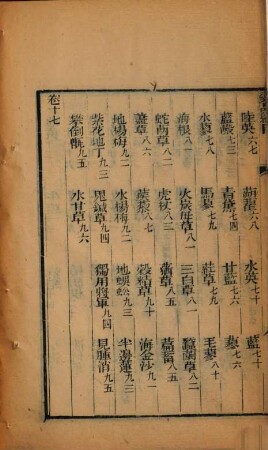 陸英六七　蒴藋六八　水英七十　藍七十
藍澱七三　青黛七四　甘藍七六　蓼七六
水蓼七八　馬蓼七九　葒草七九　毛蓼八十
海根八一　火炭母草八一　三白草八一　蠶繭草八二
蛇䓖草八二　虎杖八三　蕕草八五　萹蓄八五
藎草八六　蒺藜八七　穀精草九十　海金沙九一
地楊梅九二　水楊梅九二　地蜈蚣九三　半邊蓮九三
紫花地丁九三　鬼鍼草九四　獨用將軍九四　見腫消九五
攀倒甑九五　水甘草九六
卷十七